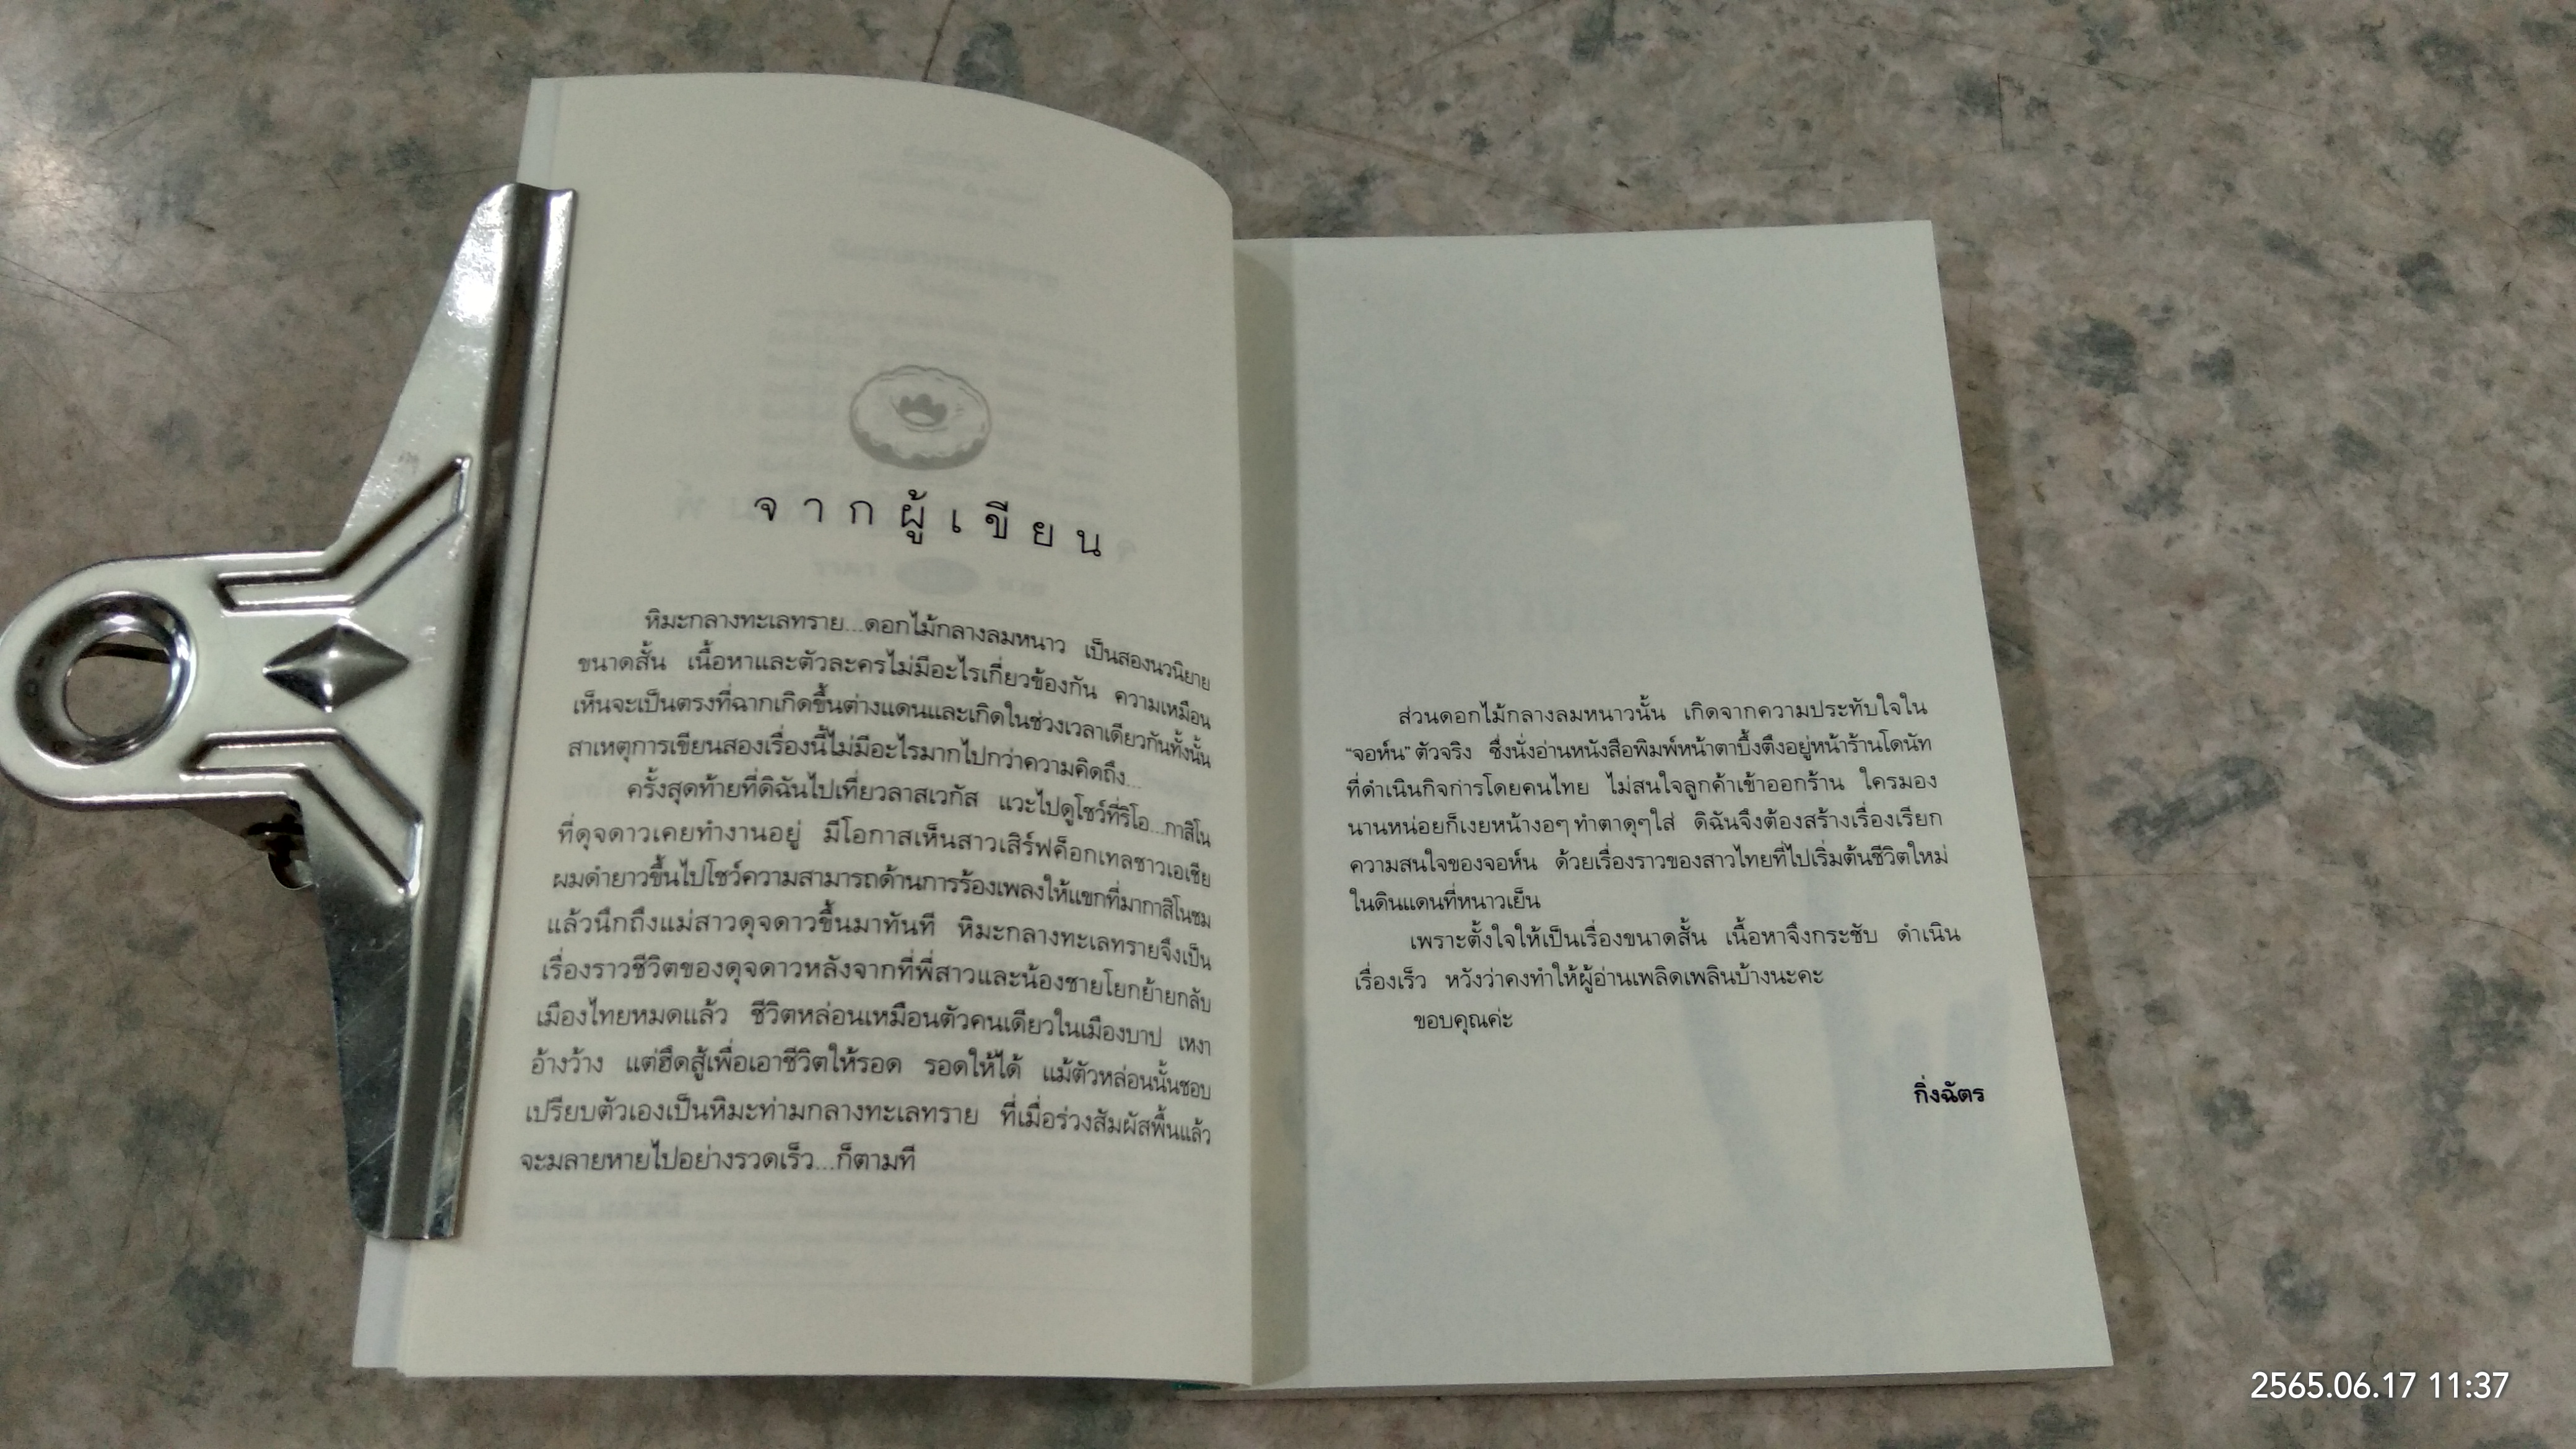 จากผู้เขียน
หิมะกลางทะเลทราย...ดอกไม้กลางลมหนาว เป็นสองนวนิยาย
ขนาดสั้น เนื้อหาและตัวละครไม่มีอะไรเกี่ยวข้องกัน ความเหมือน
เห็นจะเป็นตรงที่ฉากเกิดขึ้นต่างแดนและเกิดในช่วงเวลาเดียวกันทั้งนั้น
สาเหตุการเขียนสองเรื่องนี้ไม่มีอะไรมากไปกว่าความคิดถึง...
ครั้งสุดท้ายที่ดิฉันไปเที่ยวลาสเวกัส แวะไปดูโชว์ที่ริโอ...กาสิโน
ที่ดุจดาวเคยทำงานอยู่ มีโอกาสเห็นสาวเสิร์ฟค็อกเทลชาวเอเชีย
ผมดำยาวขึ้นไปโชว์ความสามารถด้านการร้องเพลงให้แขกที่มากาสิโนชม
แล้วนึกถึงแม่สาวดุจดาวขึ้นมาทันที หิมะกลางทะเลทรายจึงเป็น
เรื่องราวชีวิตของดุจดาวหลังจากที่พี่สาวและน้องชายโยกย้ายกลับ
เมืองไทยหมดแล้ว ชีวิตหล่อนเหมือนตัวคนเดียวในเมืองบาป เหงา
อ้างว้าง แต่ฮึดสู้เพื่อเอาชีวิตให้รอด รอดให้ได้ แม้ตัวหล่อนนั้นชอบ
เปรียบตัวเองเป็นหิมะท่ามกลางทะเลทราย ที่เมื่อร่วงสัมผัสพื้นแล้ว
จะมลายหายไปอย่างรวดเร็ว...ก็ตามที
ส่วนดอกไม้กลางลมหนาวนั้น เกิดจากความประทับใจใน
“จอห์น” ตัวจริง ซึ่งนั่งอ่านหนังสือพิมพ์หน้าตาบึ้งตึงอยู่หน้าร้านโดนัท
ที่ดำเนินกิจการโดยคนไทย ไม่สนใจลูกค้าเข้าออกร้าน ใครมอง
นานหน่อยก็เงยหน้างอๆ ทำตาดุๆ ใส่ ดิฉันจึงต้องสร้างเรื่องเรียก
ความสนใจของจอห์น ด้วยเรื่องราวของสาวไทยที่ไปเริ่มต้นชีวิตใหม่
ในดินแดนที่หนาวเย็น
เพราะตั้งใจให้เป็นเรื่องขนาดสั้น เนื้อหาจึงกระชับ ดำเนิน
เรื่องเร็ว หวังว่าคงทำให้ผู้อ่านเพลิดเพลินบ้างนะคะ
ขอบคุณค่ะ
กิ่งฉัตร
2565.06.17 11:37